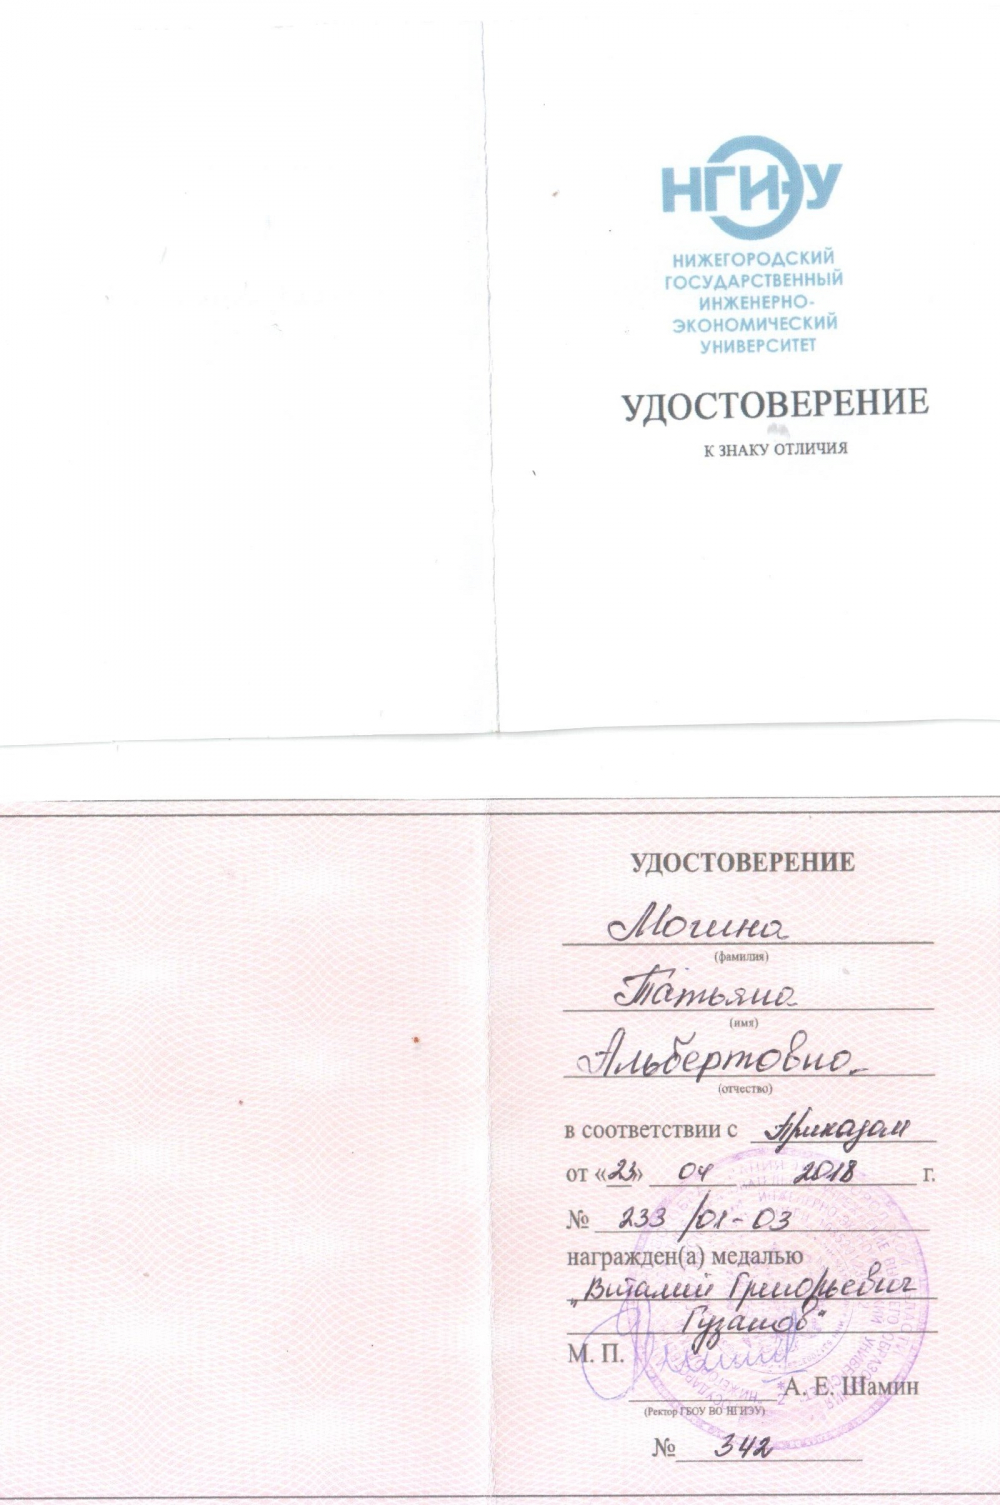 НГИЭУ
НИЖЕГОРОДСКИЙ
ГОСУДАРСТВЕННЫЙ
ИНЖЕНЕРНО-
ЭКОНОМИЧЕСКИЙ
УНИВЕРСИТЕТ
УДОСТОВЕРЕНИЕ
К ЗНАКУ ОТЛИЧИЯ
УДОСТОВЕРЕНИЕ
Могина
(фамилия)
Татьяна
(имя)
Альбертовна
(отчество)
в соответствии с Приказом
от «23» 04 2018 г.
№ 233/01-03
награжден(а) медалью
"Виталий Григорьевич
Гузанов"
М. П.
А. Е. Шамин
(Ректор ГБОУ ВО НГИЭУ)
№ 342